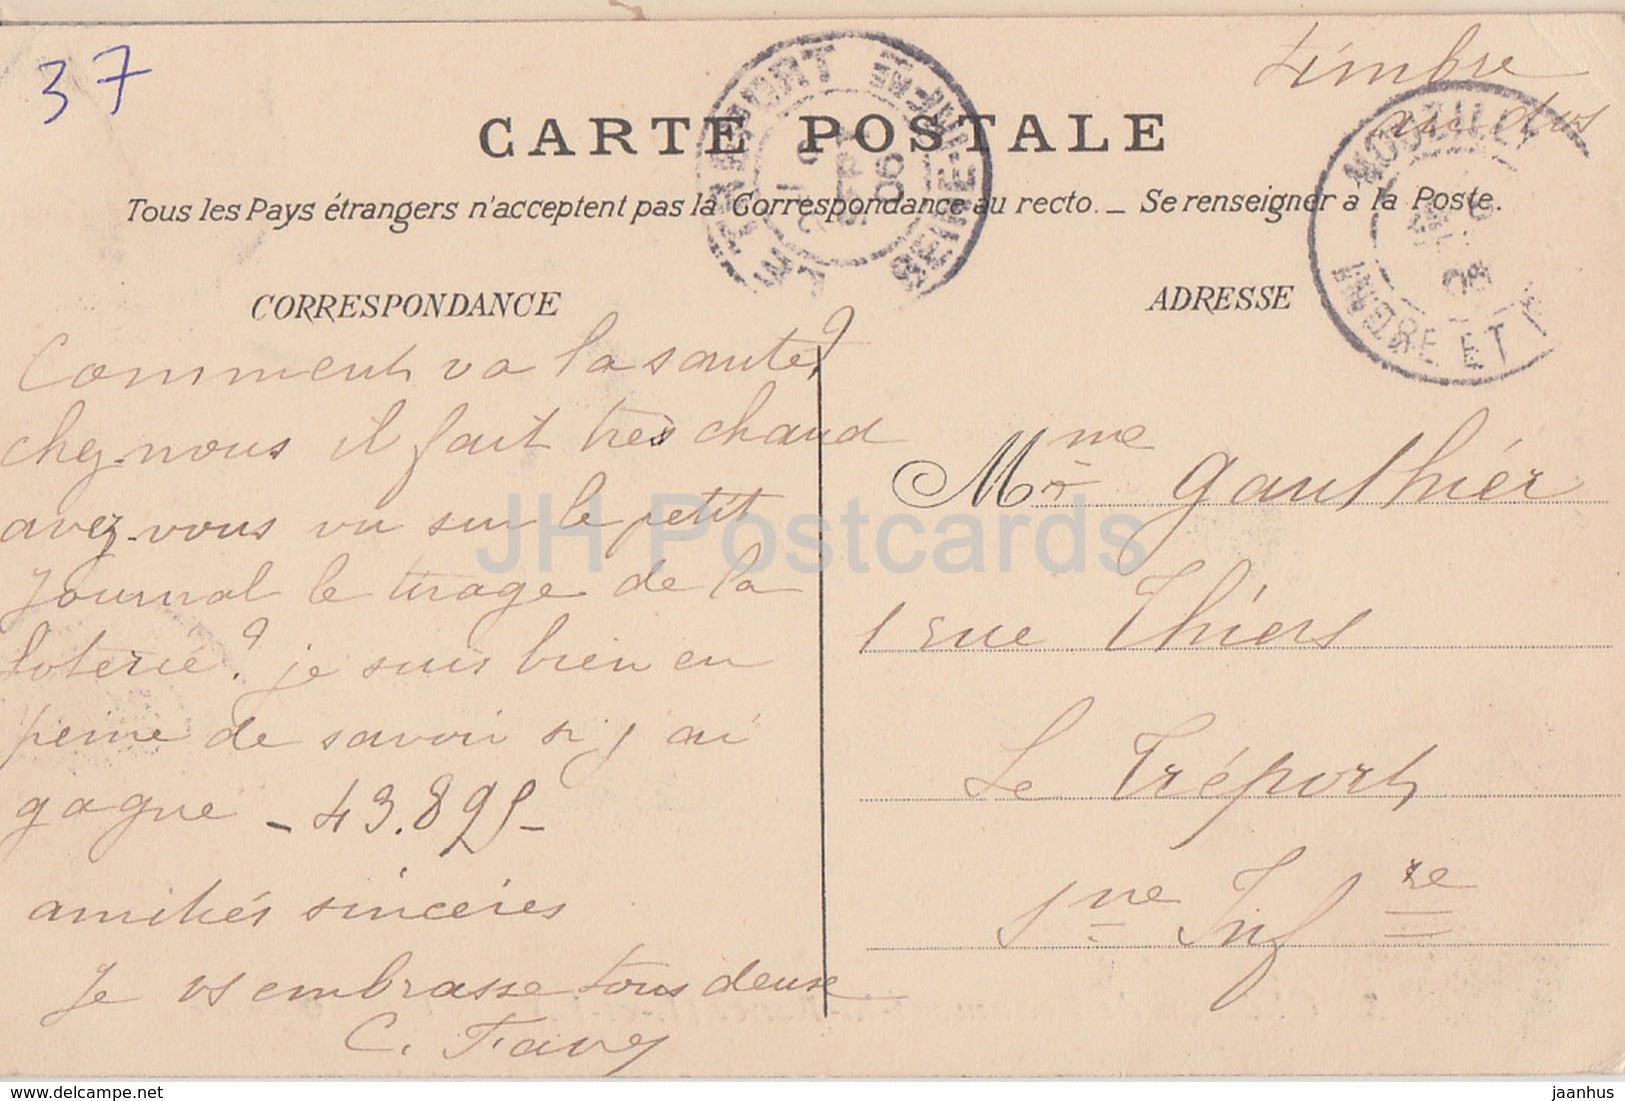 37
timbre
au dos
CARTE POSTALE
Tous les Pays étrangers n'acceptent pas la Correspondance au recto. _ Se renseigner a la Poste.
LE TREPORT SEINE-INFRE
INDRE ET
CORRESPONDANCE
Comment va la santé?
chez-nous il fait très chaud
avez-vous vu sur le petit
journal le tirage de la
loterie? je suis bien en
peine de savoir si j ai
gagné - 43.895 -
amitiés sincères
Je vs embrasse tous deux
C. Favry
ADRESSE
Mme Gauthier
1 rue Thiers
Le Tréport
Sne Infre
JH Postcards
37-1163
jaanhus